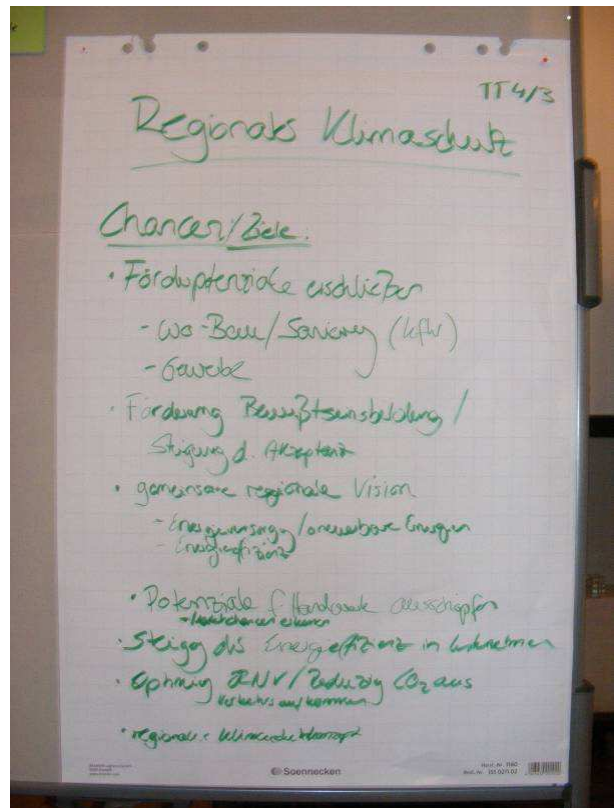 TT 4/3
Regionales Klimaschutz
Chancen/Ziele:
• Förderpotenziale erschließen
- Wo-Bau/Sanierung (KfW)
- Gewerbe
• Förderung Bewußtseinsbildung /
Steigerung d. Akzeptanz
• gemeinsame regionale Vision
- Energieversorgung/erneuerbare Energien
- Energieeffizienz
• Potenziale f Handwerk ausschöpfen
- Marktchancen erkennen
• Steigerg der Energieeffizienz in Unternehmen
• Optimierg ÖPNV / Reduzierg CO2 aus
Verkehrsaufkommen
• regionales Klimaschutzkonzept
Soennecken